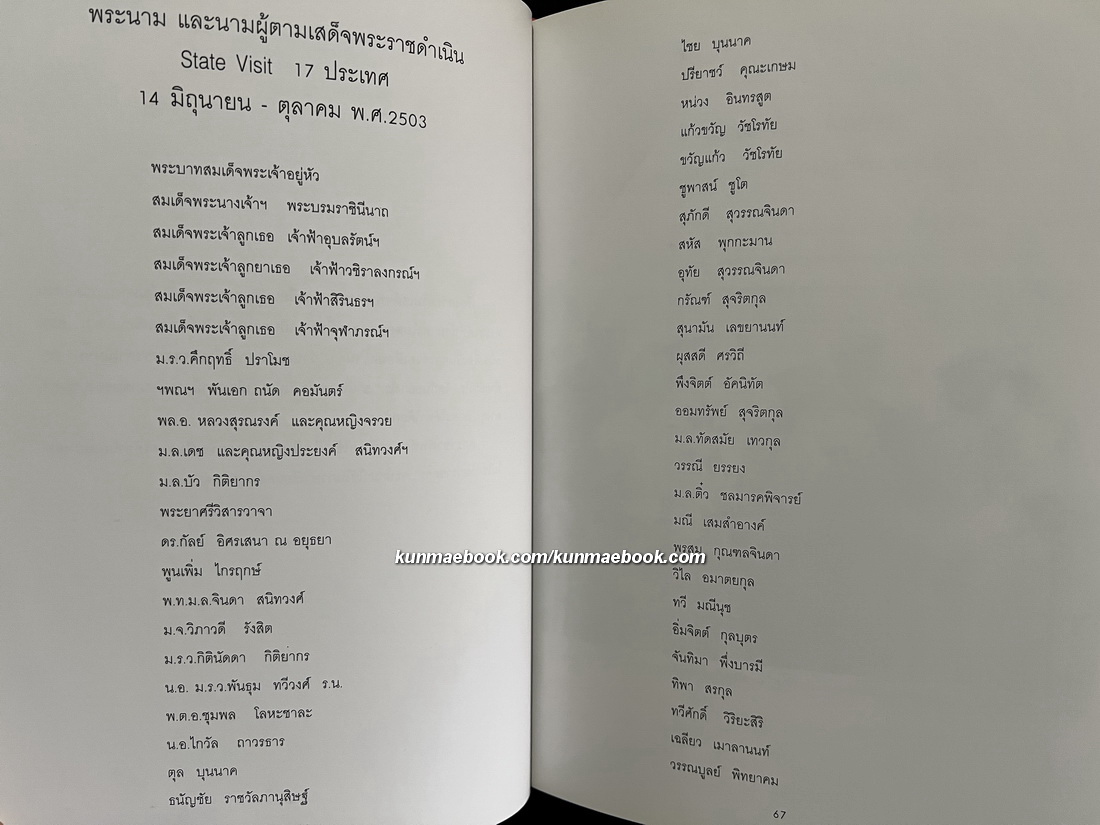 พระนาม และนามผู้ตามเสด็จพระราชดำเนิน
State Visit 17 ประเทศ
14 มิถุนายน - ตุลาคม พ.ศ.2503
พระบาทสมเด็จพระเจ้าอยู่หัว
สมเด็จพระนางเจ้าฯ พระบรมราชินีนาถ
สมเด็จพระเจ้าลูกเธอ เจ้าฟ้าอุบลรัตน์ฯ
สมเด็จพระเจ้าลูกยาเธอ เจ้าฟ้าวชิราลงกรณ์ฯ
สมเด็จพระเจ้าลูกเธอ เจ้าฟ้าสิรินธรฯ
สมเด็จพระเจ้าลูกเธอ เจ้าฟ้าจุฬาภรณ์ฯ
ม.ร.ว.คึกฤทธิ์ ปราโมช
ฯพณฯ พันเอก ถนัด คอมันตร์
พล.อ. หลวงสุรณรงค์ และคุณหญิงจรวย
ม.ล.เดช และคุณหญิงประยงค์ สนิทวงศ์ฯ
ม.ล.บัว กิติยากร
พระยาศรีวิสารวาจา
ดร.กัลย์ อิศรเสนา ณ อยุธยา
พูนเพิ่ม ไกรฤกษ์
พ.ท.ม.ล.จินดา สนิทวงศ์
ม.จ.วิภาวดี รังสิต
ม.ร.ว.กิตินัดดา กิติยากร
น.อ. ม.ร.ว.พันธุม ทวีวงศ์ ร.น.
พ.ต.อ.ชุมพล โลหะชาละ
น.อ.ไกวัล ถาวรธาร
ตุล บุนนาค
ธนัญชัย ราชวัลภานุสิษฐ์
ไชย บุนนาค
ปรียาชว์ คุณะเกษม
หน่วง อินทรสูต
แก้วขวัญ วัชโรทัย
ขวัญแก้ว วัชโรทัย
ชูพาสน์ ชูโต
สุภักดี สุวรรณจินดา
สหัส พุกกะมาน
อุทัย สุวรรณจินดา
กรัณฑ์ สุจริตกุล
สุนามัน เลขยานนท์
ผุสสดี ศรวิถี
พึงจิตต์ อัคนิทัต
ออมทรัพย์ สุจริตกุล
ม.ล.ทัดสมัย เทวกุล
วรรณี ยรรยง
ม.ล.ติ๋ว ชลมารคพิจารย์
มณี เสมสำอางค์
พรสม กุณฑลจินดา
kunmaebook.com/kunmaebook.com
วิไล อมาตยกุล
ทวี มณีนุช
อิ่มจิตต์ กุลบุตร
จันทิมา พึ่งบารมี
ทิพา สรกุล
ทวีศักดิ์ วิริยะสิริ
เฉลียว เมาลานนท์
วรรณบูลย์ พิทยาคม
67